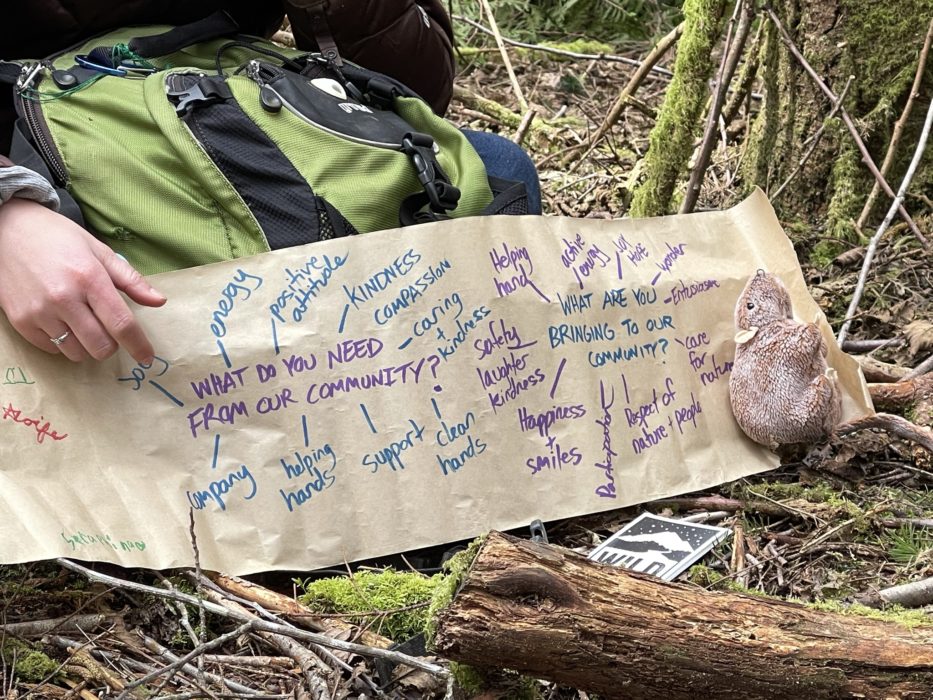 energy
positive
attitude
KINDNESS
COMPASSION
caring
+
kindness
joy
WHAT DO YOU NEED
FROM OUR COMMUNITY?
company
helping
hands
support
clean
hands
Helping
hand
active
energy
joy
HOPE
wonder
WHAT ARE YOU
BRINGING TO OUR
COMMUNITY?
Entusiasm
safety
laughter
kindness
Happiness
+
smiles
Participation
Respect of
nature + people
care
for
nature
Aoife